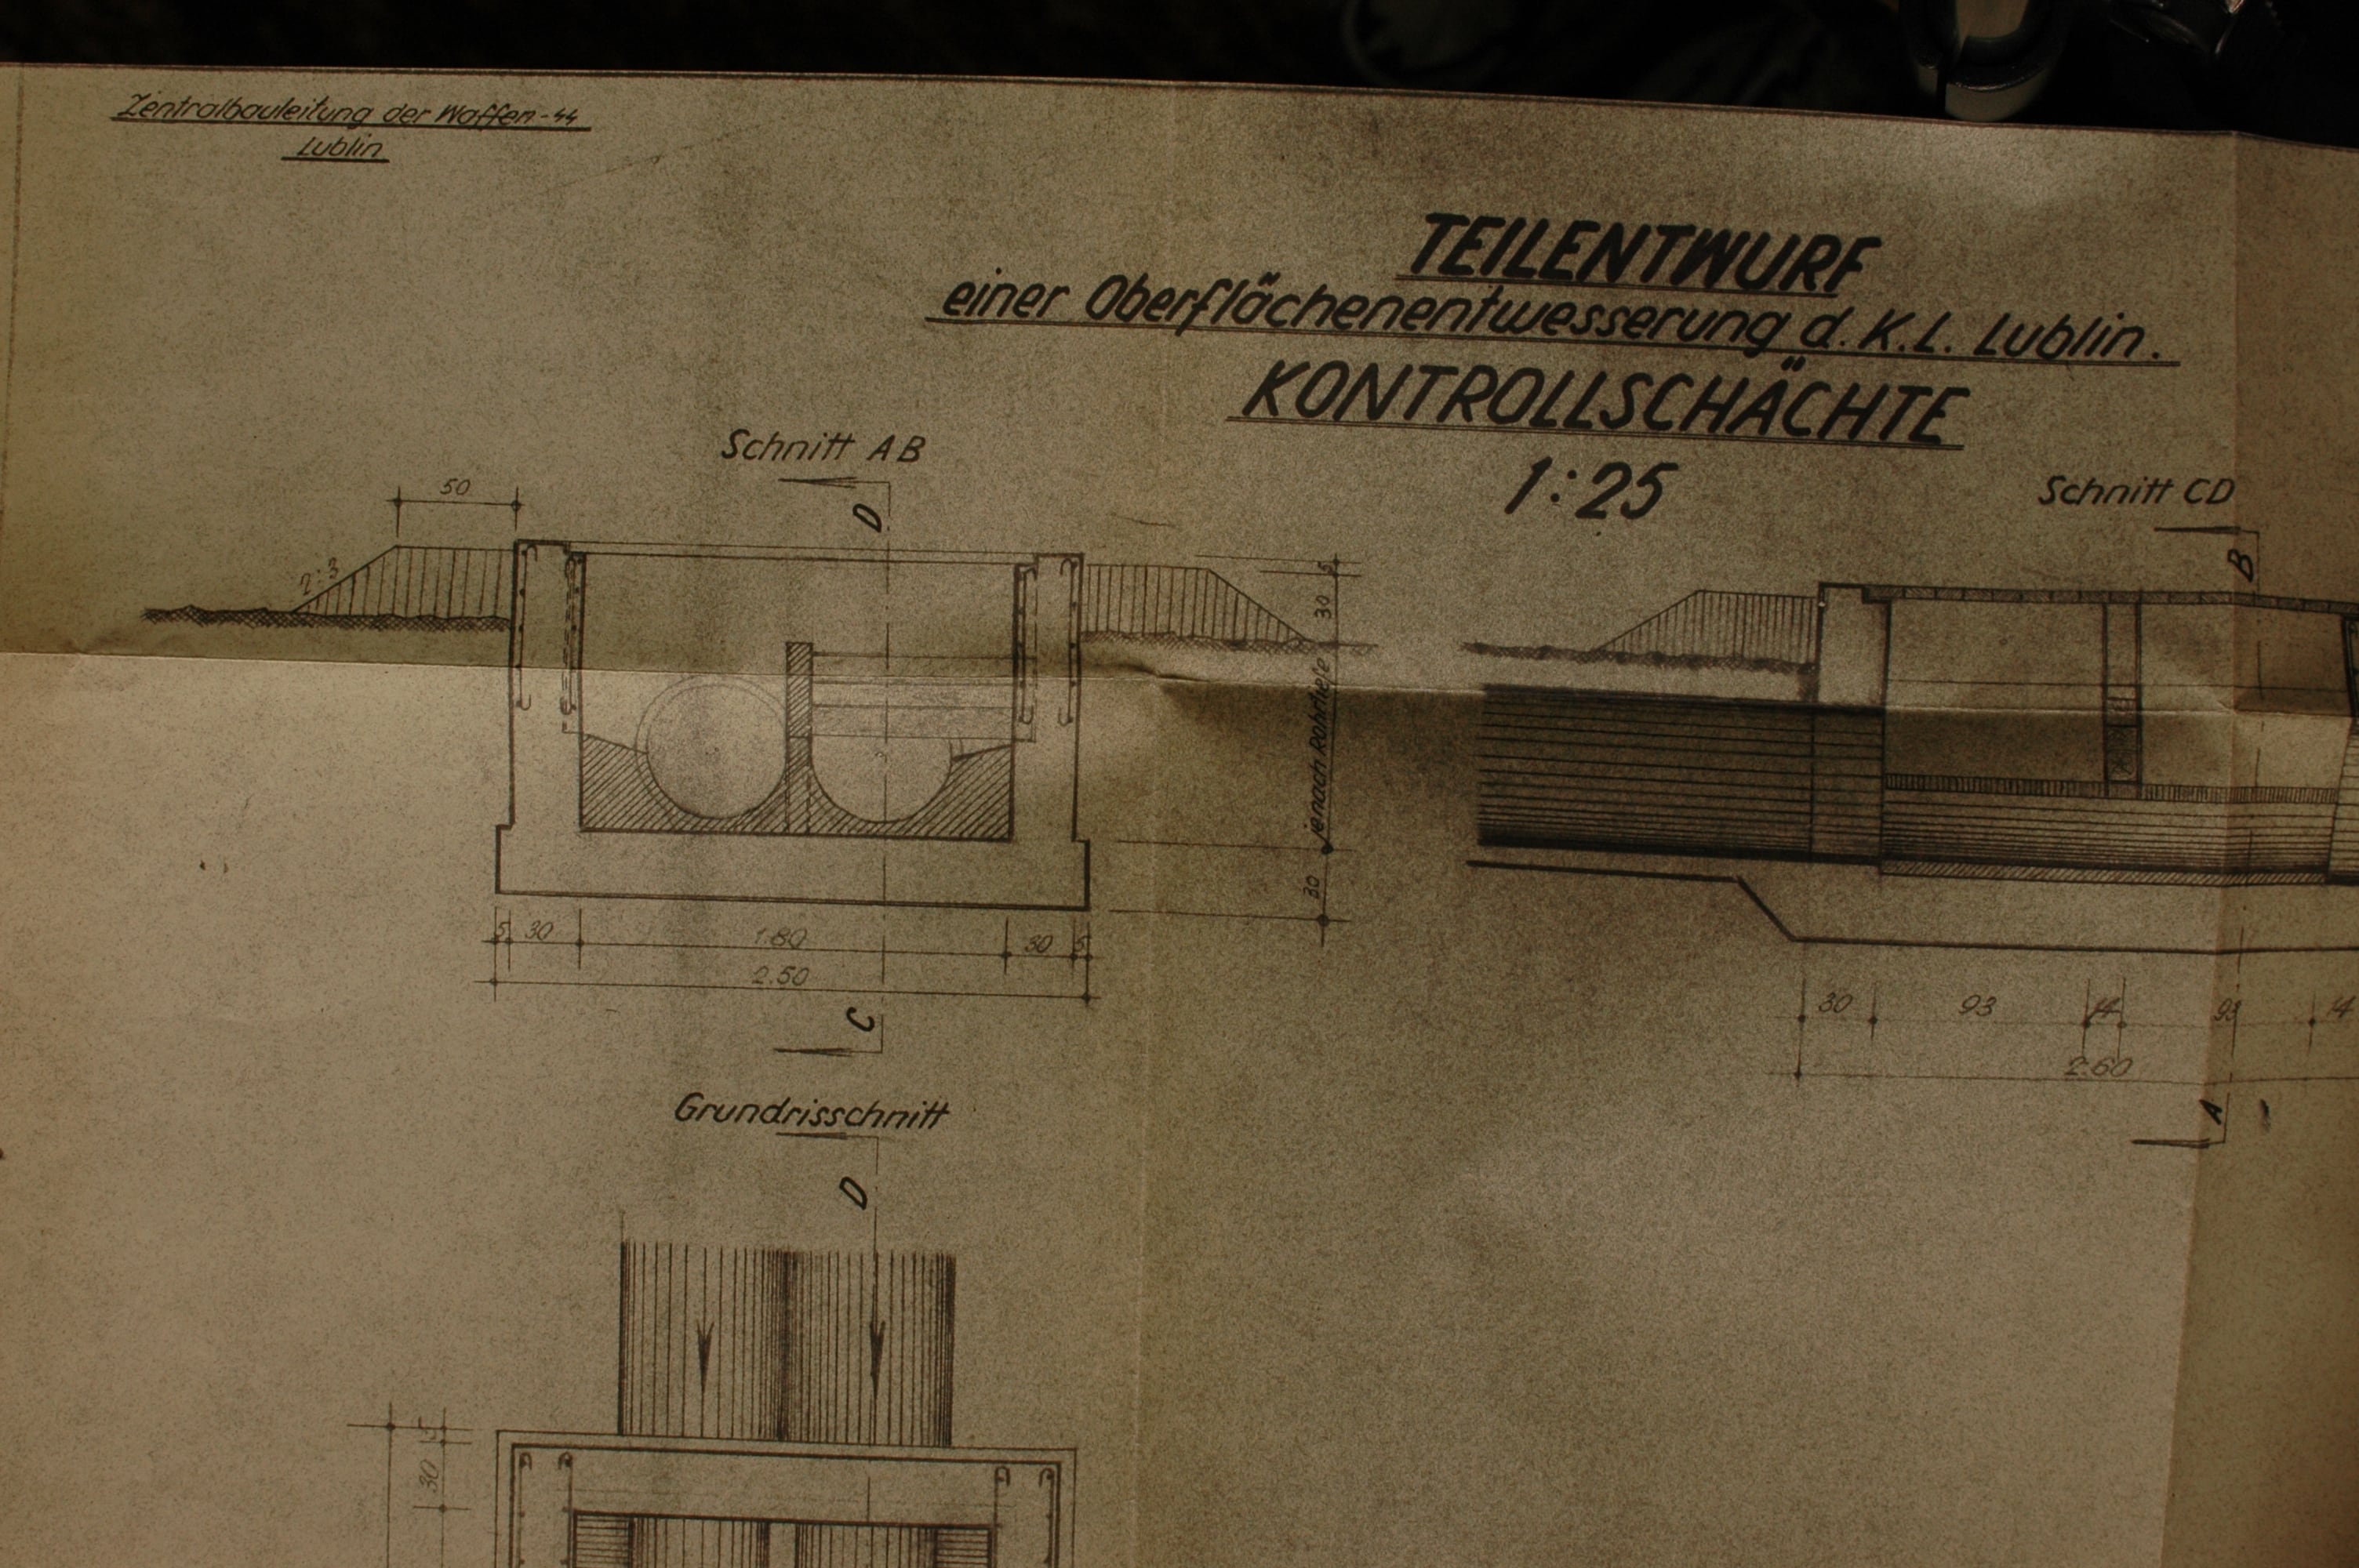 Zentralbauleitung der Waffen-SS
Lublin
TEILENTWURF
einer Oberflächenentwesserung d. K.L. Lublin.
KONTROLLSCHÄCHTE
1:25
Schnitt AB
Schnitt CD
50
D
B
2:3
5
30
jenach Rohrtiefe
30
5 30 1.80 30 5
2.50
C
30 93 14 93 14
2.60
A
Grundrisschnitt
D
5
30